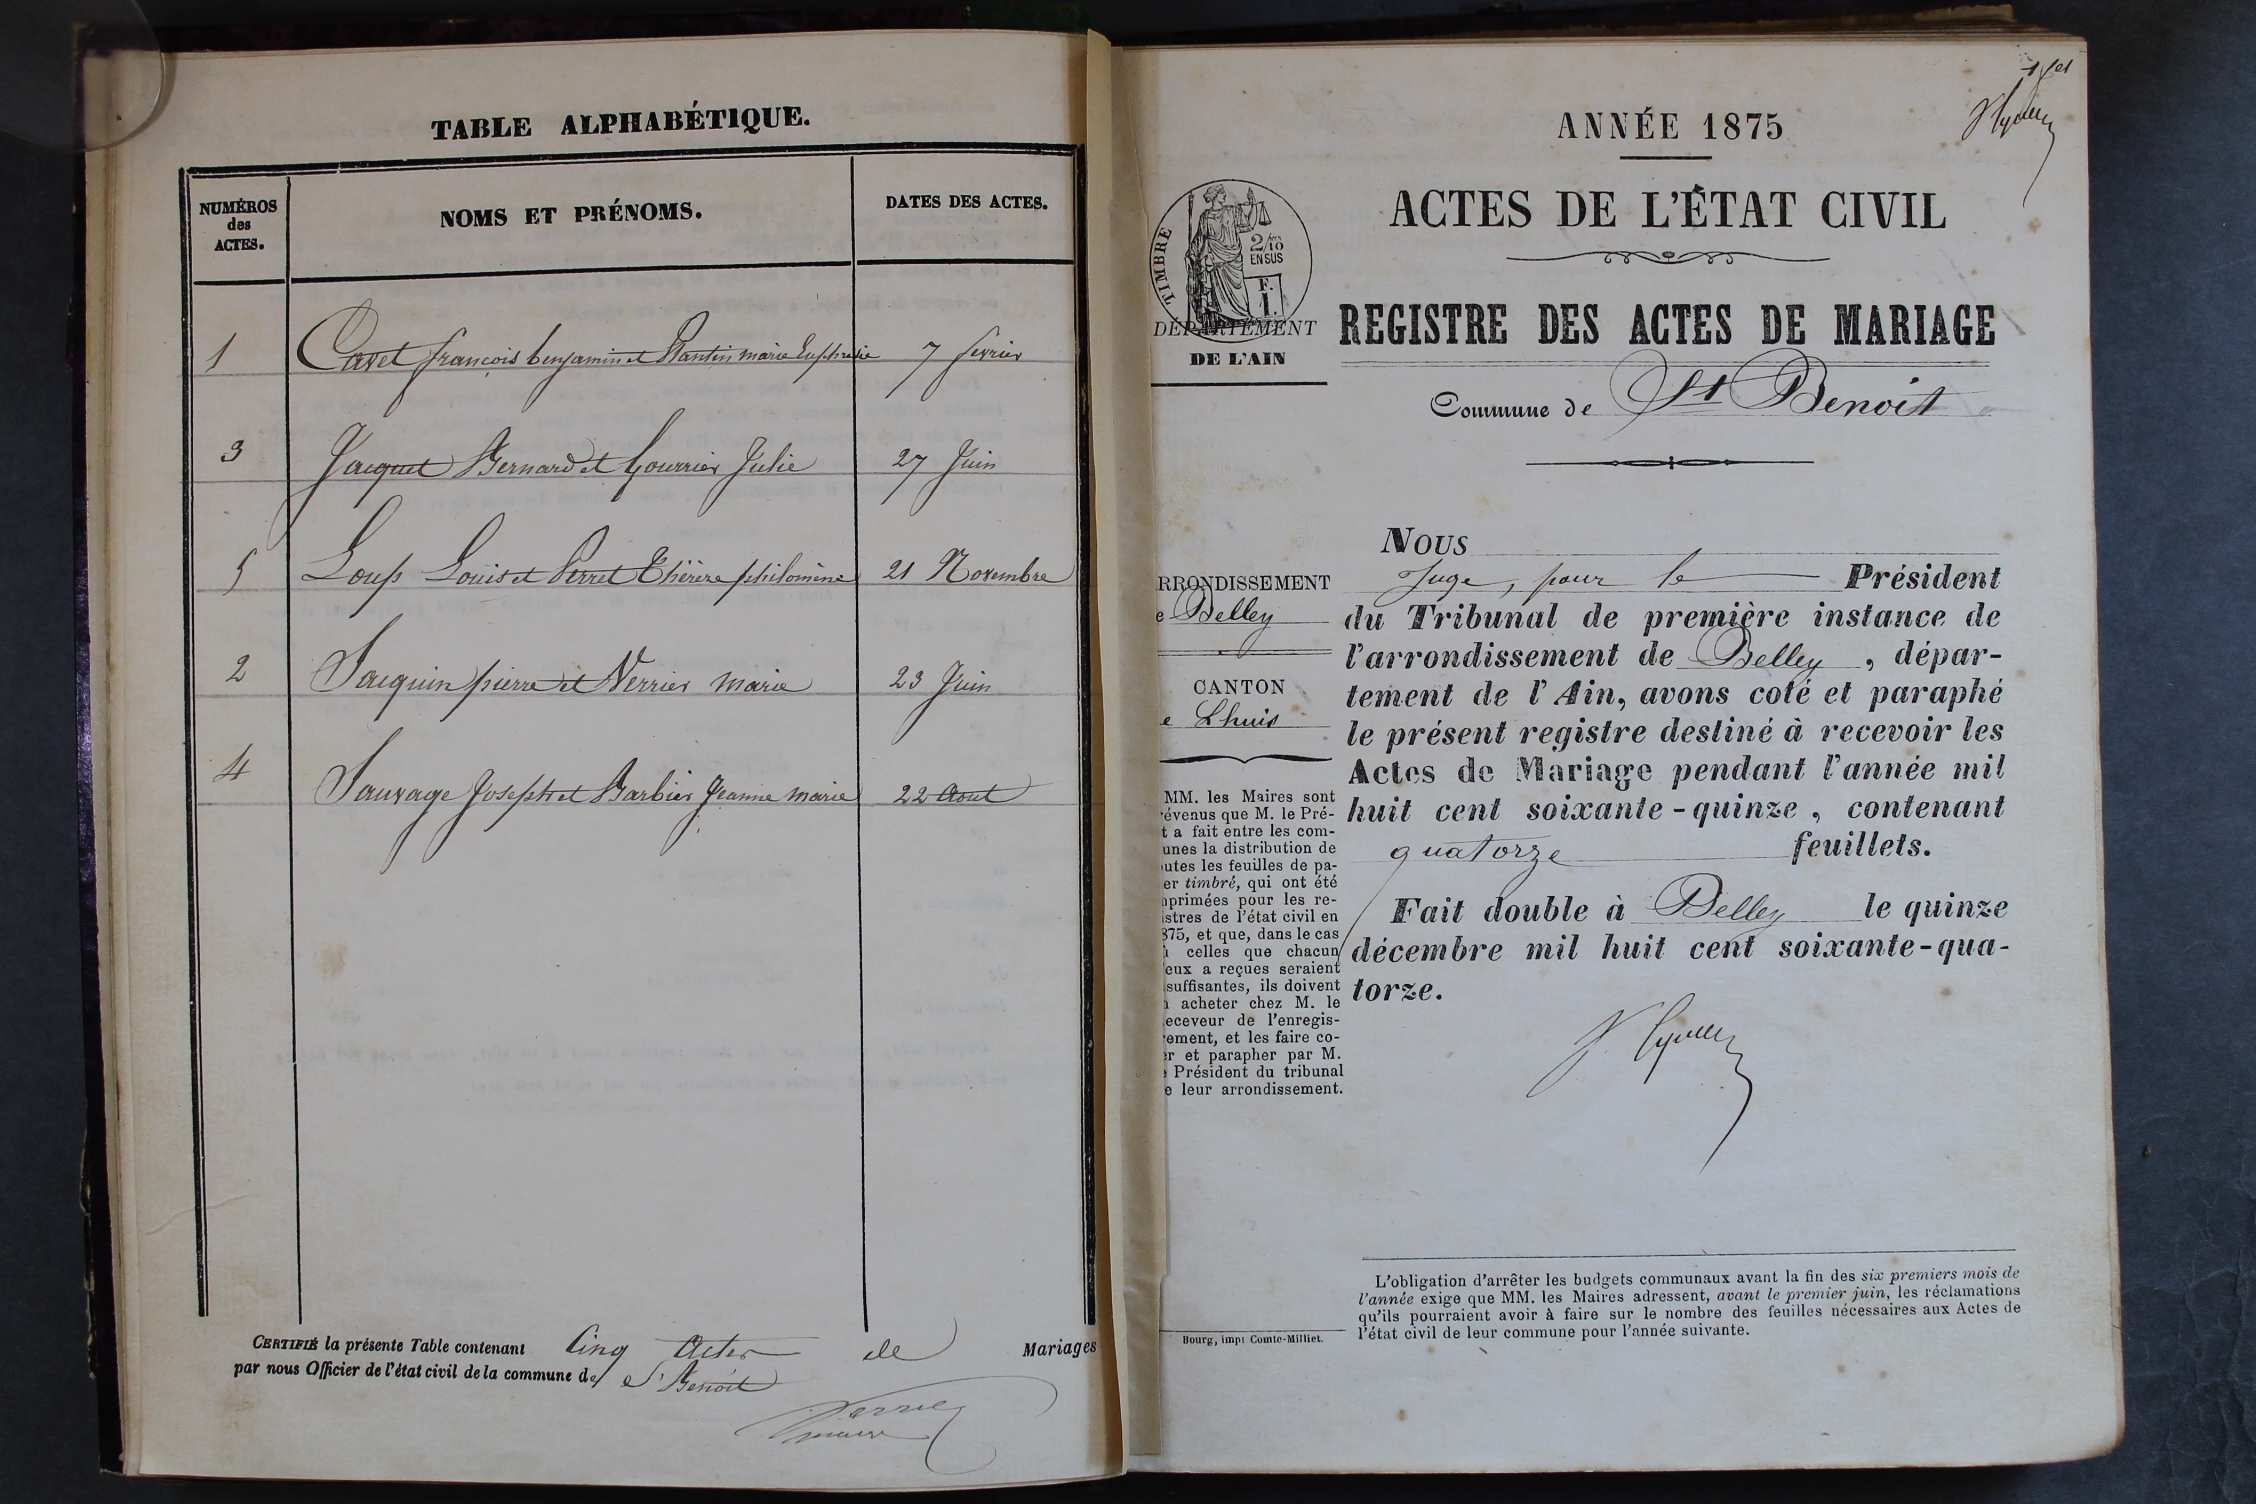 TABLE ALPHABÉTIQUE.
NUMÉROS
des
ACTES.
NOMS ET PRÉNOMS.
DATES DES ACTES.
1 Cavet françois benjamin et Plantin marie Euphrasie 7 fevrier
3 Jacquet Bernard et Gourrier Julie 27 Juin
5 Loup Louis et Perret Thérèze philomène 21 Novembre
2 Saequin pierre et Verrier marie 23 Juin
4 Sauvage Joseph et Barbier Jeanne marie 22 Aout
CERTIFIÉ la présente Table contenant Cinq Actes de Mariages
par nous Officier de l'état civil de la commune de St Benoit
maire
1er
ANNÉE 1875
ACTES DE L'ÉTAT CIVIL
TIMBRE
2/10
EN SUS
F.
1.
DÉPARTEMENT
DE L'AIN
REGISTRE DES ACTES DE MARIAGE
Commune de St Benoit
RRONDISSEMENT
e Belley
CANTON
e Lhuis
MM. les Maires sont
révenus que M. le Pré-
t a fait entre les com-
unes la distribution de
utes les feuilles de pa-
er timbré, qui ont été
nprimées pour les re-
istres de l'état civil en
875, et que, dans le cas
celles que chacun
eux a reçues seraient
suffisantes, ils doivent
acheter chez M. le
eceveur de l'enregis-
rement, et les faire co-
er et parapher par M.
Président du tribunal
e leur arrondissement.
Bourg, impr Comte-Milliet.
Nous
Juge, pour le Président
du Tribunal de première instance de
l'arrondissement de Belley, dépar-
tement de l'Ain, avons coté et paraphé
le présent registre destiné à recevoir les
Actes de Mariage pendant l'année mil
huit cent soixante-quinze, contenant
quatorze feuillets.
Fait double à Belley le quinze
décembre mil huit cent soixante-qua-
torze.
L'obligation d'arrêter les budgets communaux avant la fin des six premiers mois de
l'année exige que MM. les Maires adressent, avant le premier juin, les réclamations
qu'ils pourraient avoir à faire sur le nombre des feuilles nécessaires aux Actes de
l'état civil de leur commune pour l'année suivante.